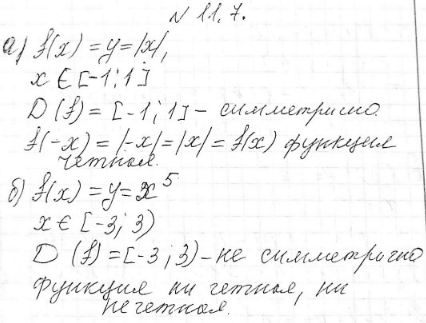 N 11.7.
а) f(x) = y = |x|,
x ∈ [-1; 1]
D (f) = [-1; 1] - симметрично.
f(-x) = |-x| = |x| = f(x) функция
четная.
б) f(x) = y = x⁵
x ∈ [-3; 3)
D (f) = [-3; 3) - не симметрично
Функция ни четная, ни
нечетная.